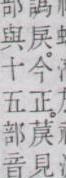 戾。今正。莫見
部與十五部音